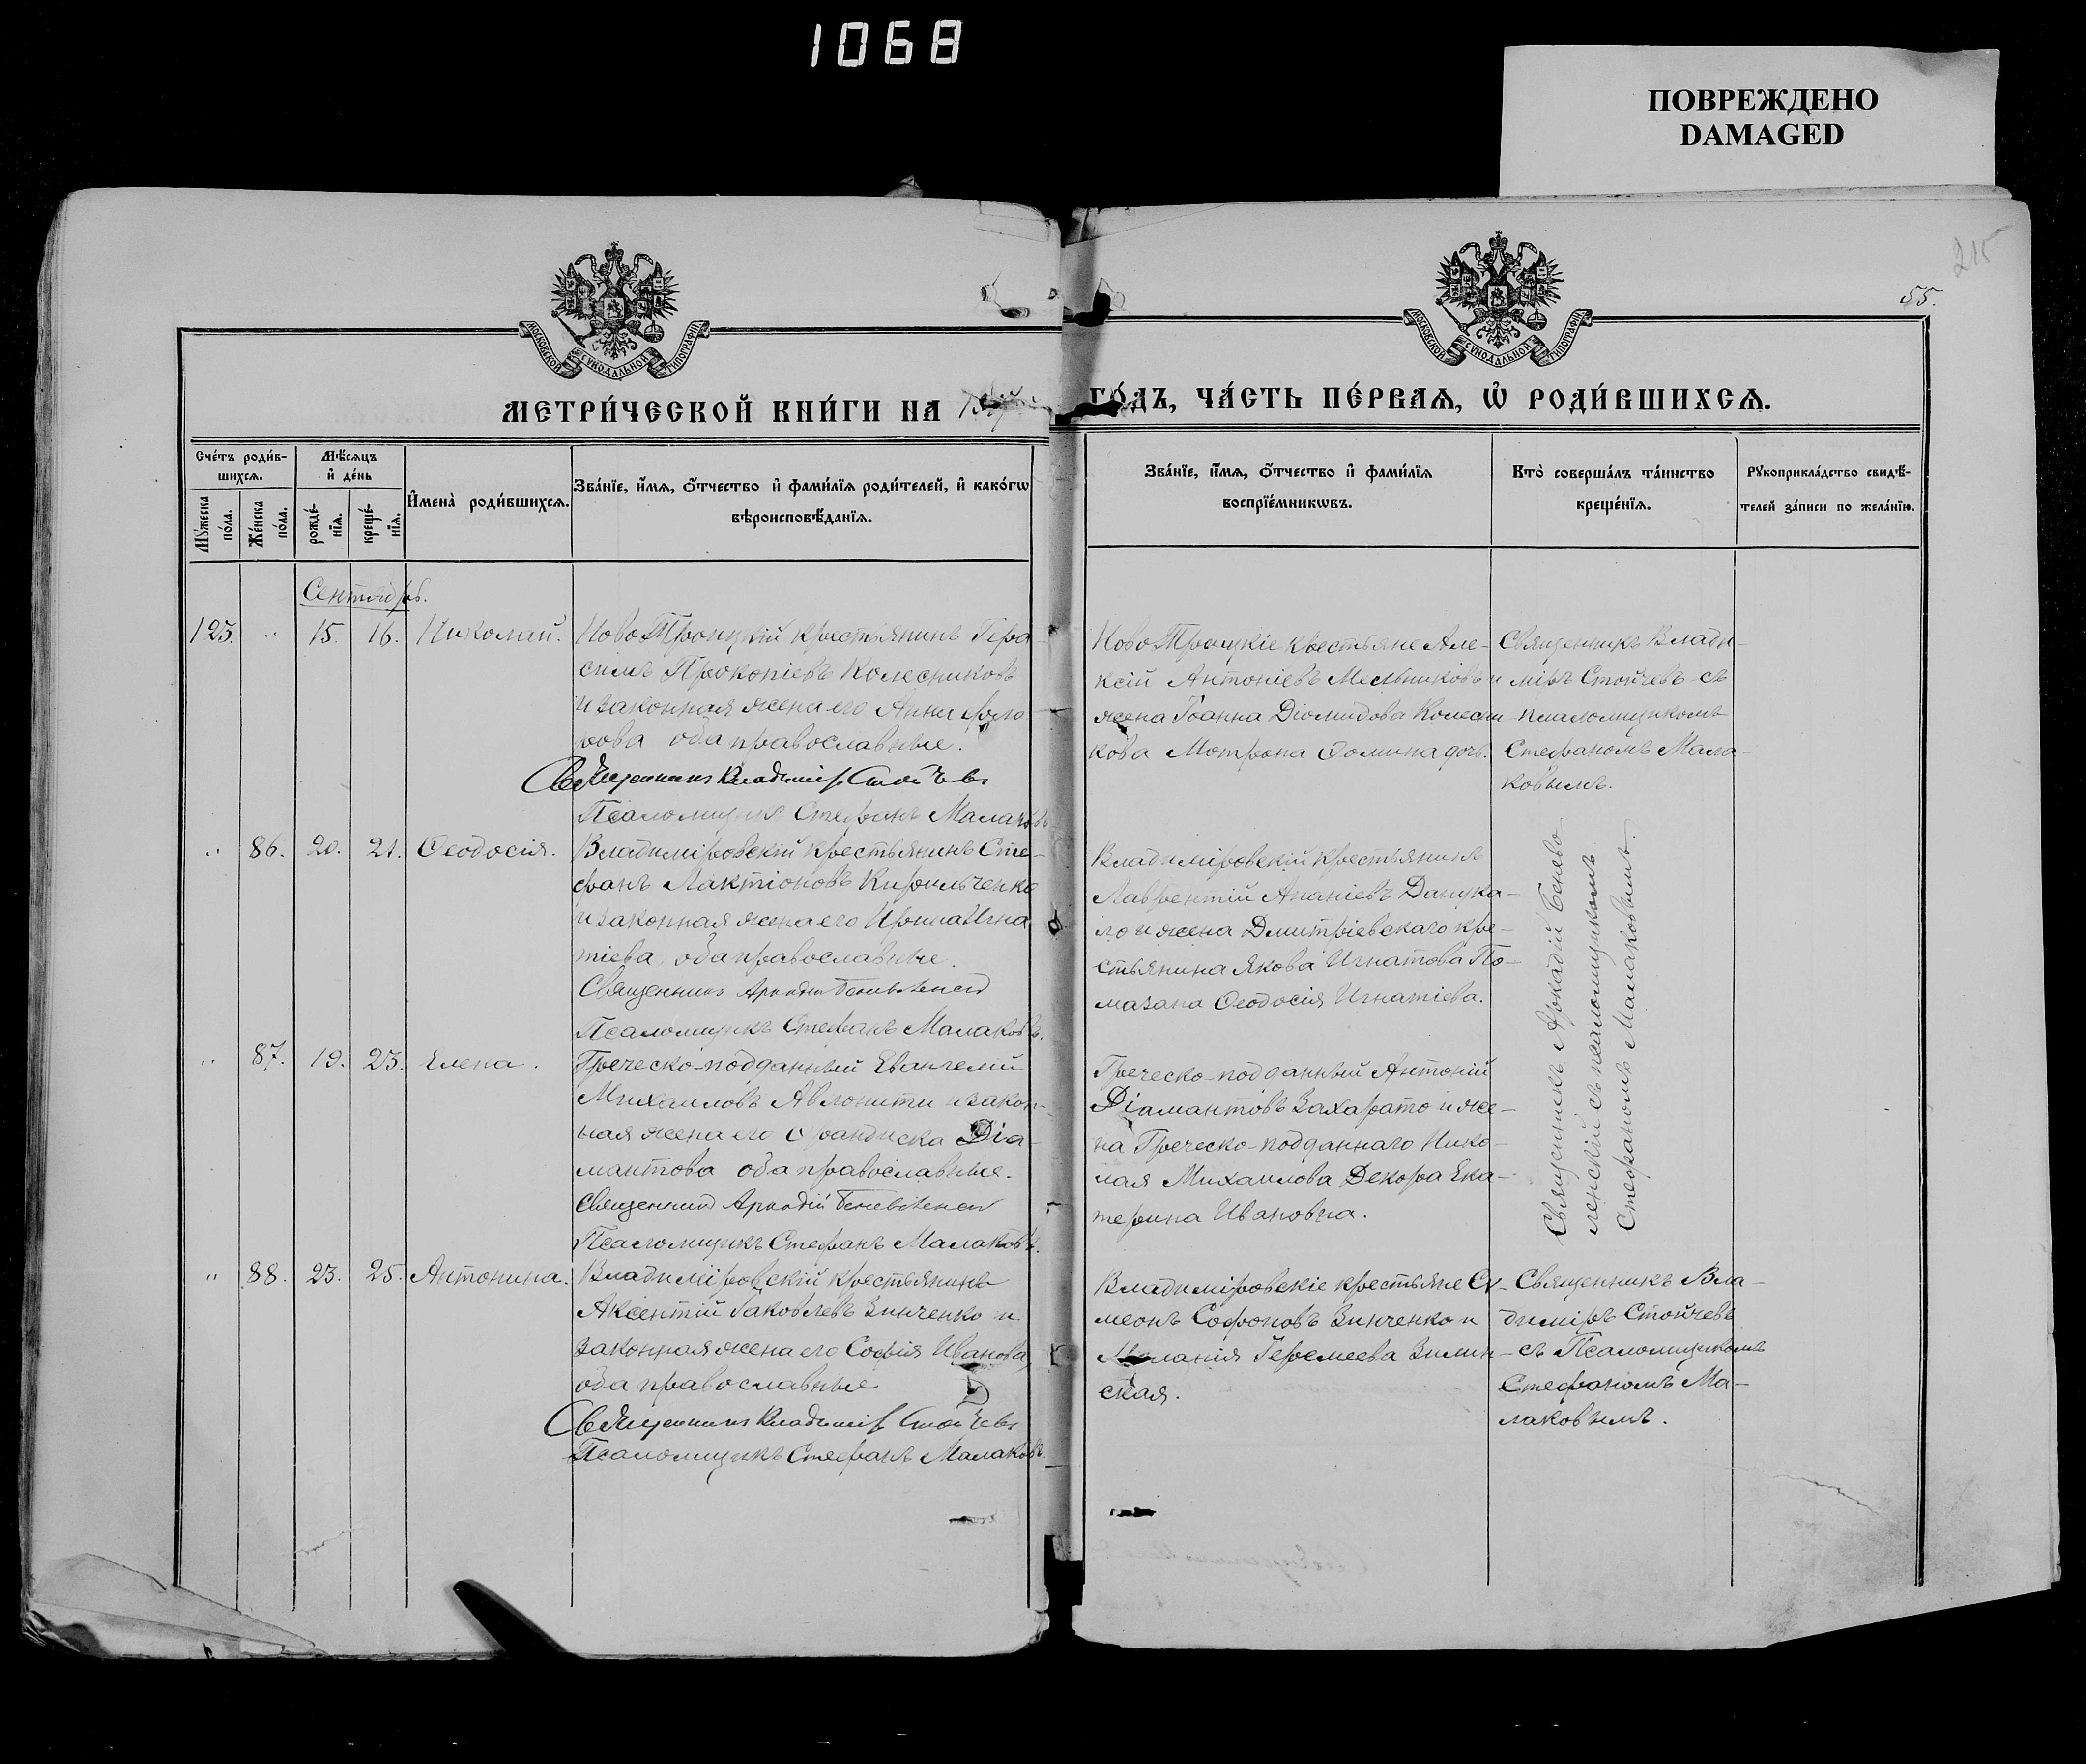 1068
ПОВРЕЖДЕНО
DAMAGED
215
55.
МОСКОВСКОЙ СѴНОДАЛЬНОЙ ТИПОГРАФІИ
МОСКОВСКОЙ СѴНОДАЛЬНОЙ ТИПОГРАФІИ
МЕТРИ́ЧЕСКОЙ КНИ́ГИ НА
ГО́ДЪ, ЧА́СТЬ ПЕ́РВАѦ, Ѡ҆ РОДИ́ВШИХСѦ.
Сче́тъ роди́в-
шихсѧ.
Мꙋ́жеска
по́ла.
Же́нска
по́ла.
Мѣ́сѧцъ
и҆ де́нь
рожде́-
нїѧ.
креще́-
нїѧ.
И҆мена̀ роди́вшихсѧ.
Зва́нїе, и҆́мѧ, ѻ҆́тчество и҆ фами́лїѧ роди́телей, и҆ како́гѡ
вѣроисповѣ́данїѧ.
Зва́нїе, и҆́мѧ, ѻ҆́тчество и҆ фами́лїѧ
воспрїе́мникѡвъ.
Кто̀ соверша́лъ та́инство
креще́нїѧ.
Рꙋкоприкла́дство свидѣ́-
телей за́писи по жела́нїю.
Сентябрь.
123. " 15. 16. Николай.
НовоТроицкій крестьянинъ Гера-
симъ Прокопіевъ Колесниковъ
и законная жена его Анна Фло-
рова оба православные.
Священникъ Владиміръ Стойчевъ
Псаломщикъ Стефанъ Малаковъ
НовоТроицкіе крестьяне Але-
ксій Антоніевъ Мельниковъ и
жена Іоанна Діомидова Колесни-
кова Мотрона Ѳомина дочь.
Священникъ Влади-
міръ Стойчевъ съ
псаломщикомъ
Стефаномъ Мала-
ковымъ.
" 86. 20. 21. Ѳеодосія.
Владиміровскій крестьянинъ Сте-
фанъ Лактіоновъ Кирильченко
и законная жена его Ирина Игна-
тіева, оба православные.
Священникъ Аркадій Беневоленскій
Псаломщикъ Стефанъ Малаковъ.
Владиміровскій крестьянинъ
Лаврентій Ананіевъ Данука-
ло и жена Дмитріевскаго кре-
стьянина Якова Игнатова По-
мазана Ѳеодосія Игнатіева.
Священникъ Аркадій Бенево-
ленскій съ псаломщикомъ
Стефаномъ Малаковымъ.
" 87. 19. 23. Елена.
Греческо-подданный Евангелій
Михаиловъ Авлонити и закон-
ная жена его Франциска Діа-
мантова оба православные.
Священникъ Аркадій Беневоленскій
Псаломщикъ Стефанъ Малаковъ.
Греческо-подданный Антоній
Діамантовъ Захарато и же-
на Греческо-подданнаго Нико-
лая Михаилова Декора Ека-
терина Ивановна.
" 88. 23. 25. Антонина.
Владиміровскій крестьянинъ
Аксентій Яковлевъ Зинченко и
законная жена его Софія Иванова,
оба православные
Священникъ Владиміръ Стойчевъ
Псаломщикъ Стефанъ Малаковъ
Владиміровскіе крестьяне Сѵ-
меонъ Софоновъ Зинченко и
Меланія Іеремеева Зилин-
ская.
Священникъ Вла-
диміръ Стойчевъ
съ Псаломщикомъ
Стефаномъ Ма-
лаковымъ.